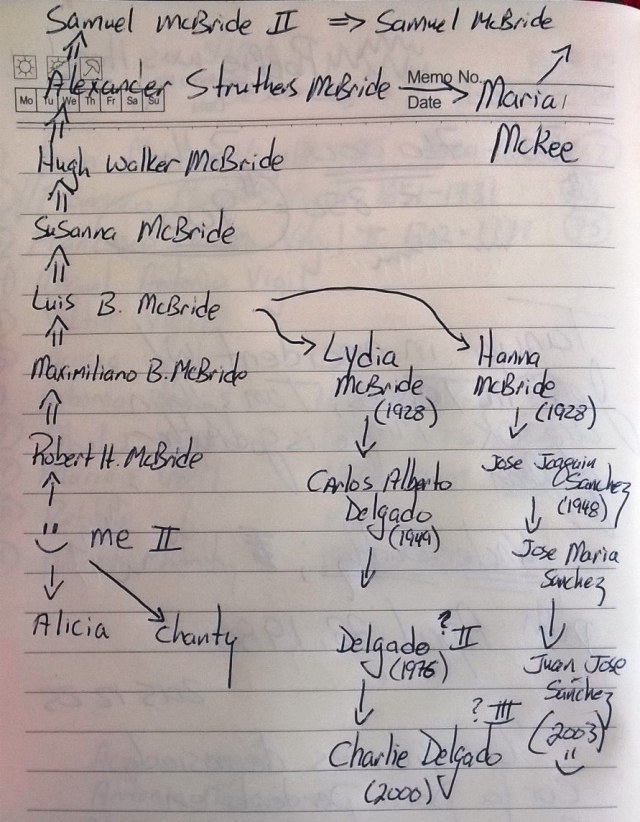 Samuel McBride II ⇒ Samuel McBride
Alexander Struthers McBride → Maria
McKee
Memo No.
Date
Mo Tu We Th Fr Sa Su
Hugh Walker McBride
Susanna McBride
Luis B. McBride
Maximiliano B. McBride
Robert H. McBride
me II
Alicia
Chanty
Lydia
McBride
(1928)
Carlos Alberto
Delgado
(1949)
Delgado ? II
(1976)
? III
Charlie Delgado
(2000)
Hanna
McBride
(1928)
Jose Joaquin
Sanchez
(1948)
Jose Maria
Sanchez
Juan Jose
Sanchez
(2003)